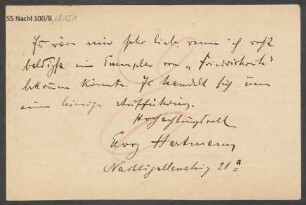 55 Nachl 100/B
Es wäre mir sehr lieb, wenn ich recht
baldigst ein Exemplar von „
bekommen könnte. Es handelt sich um
eine Aufführung.
Hochachtungsvoll
Georg Hartmann
21a